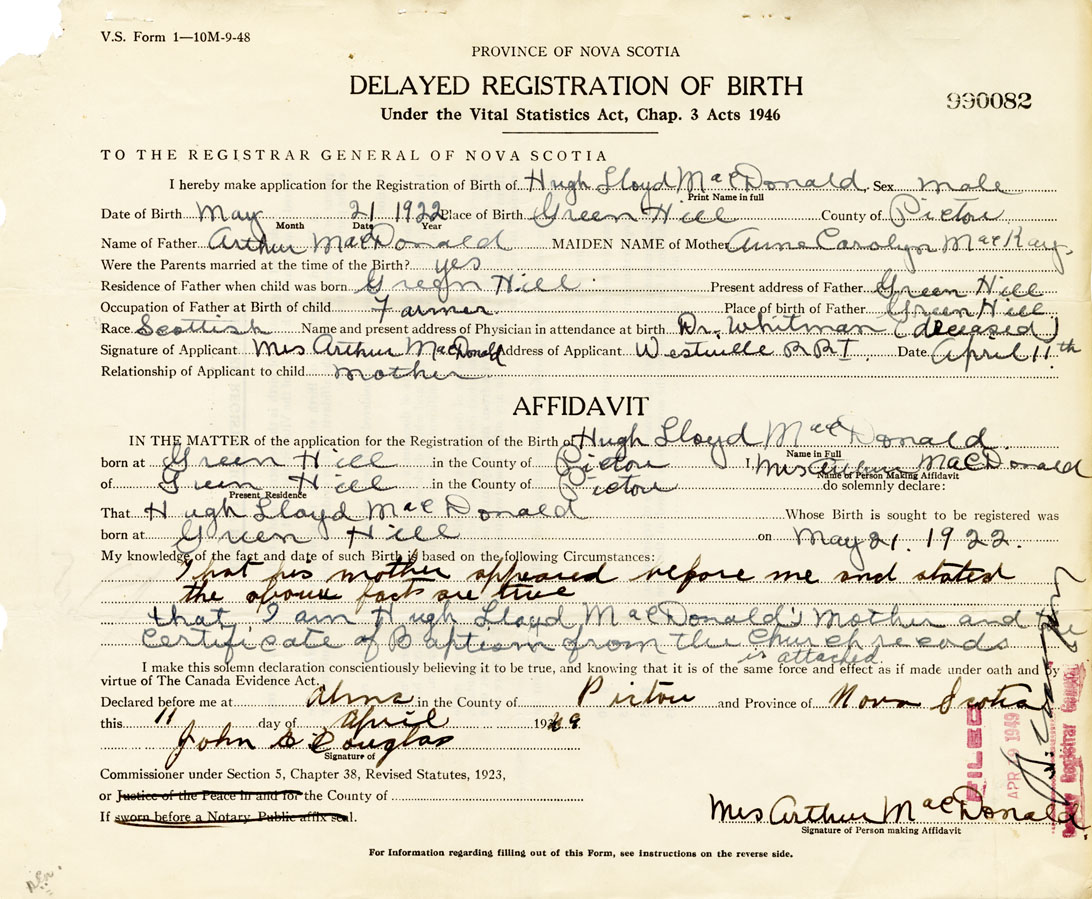 V.S. Form 1—10M-9-48
PROVINCE OF NOVA SCOTIA
DELAYED REGISTRATION OF BIRTH
990082
Under the Vital Statistics Act, Chap. 3 Acts 1946
TO THE REGISTRAR GENERAL OF NOVA SCOTIA
I hereby make application for the Registration of Birth of Hugh Lloyd MacDonald Sex male
Print Name in full
Date of Birth May 21 1922 Place of Birth Green Hill County of Pictou
Month Date Year
Name of Father Arthur MacDonald MAIDEN NAME of Mother Anne Carolyn MacKay
Were the Parents married at the time of the Birth? yes
Residence of Father when child was born Green Hill Present address of Father Green Hill
Occupation of Father at Birth of child Farmer Place of birth of Father Green Hill
Race Scottish Name and present address of Physician in attendance at birth Dr. Whitman (deceased)
Signature of Applicant Mrs Arthur MacDonald Address of Applicant Westville R R I Date April 11th
Relationship of Applicant to child mother
AFFIDAVIT
IN THE MATTER of the application for the Registration of the Birth of Hugh Lloyd MacDonald
Name in Full
born at Green Hill in the County of Pictou I, Mrs Arthur MacDonald
Name of Person Making Affidavit
of Green Hill in the County of Pictou do solemnly declare:
Present Residence
That Hugh Lloyd MacDonald Whose Birth is sought to be registered was
born at Green Hill on May 21. 1922.
My knowledge of the fact and date of such Birth is based on the following Circumstances:
That his mother appeared before me and stated
the above facts are true
that I am Hugh Lloyd MacDonald's Mother and the
Certificate of Baptism from the Church records
is attached.
I make this solemn declaration conscientiously believing it to be true, and knowing that it is of the same force and effect as if made under oath and by
virtue of The Canada Evidence Act.
Declared before me at Alma in the County of Pictou and Province of Nova Scotia
this 11 day of April 1949
John Douglas
Signature of
Commissioner under Section 5, Chapter 38, Revised Statutes, 1923,
or Justice of the Peace in and for the County of
If sworn before a Notary Public affix seal.
Mrs Arthur MacDonald
Signature of Person making Affidavit
For Information regarding filling out of this Form, see instructions on the reverse side.
FILED
APR 1949
Registrar